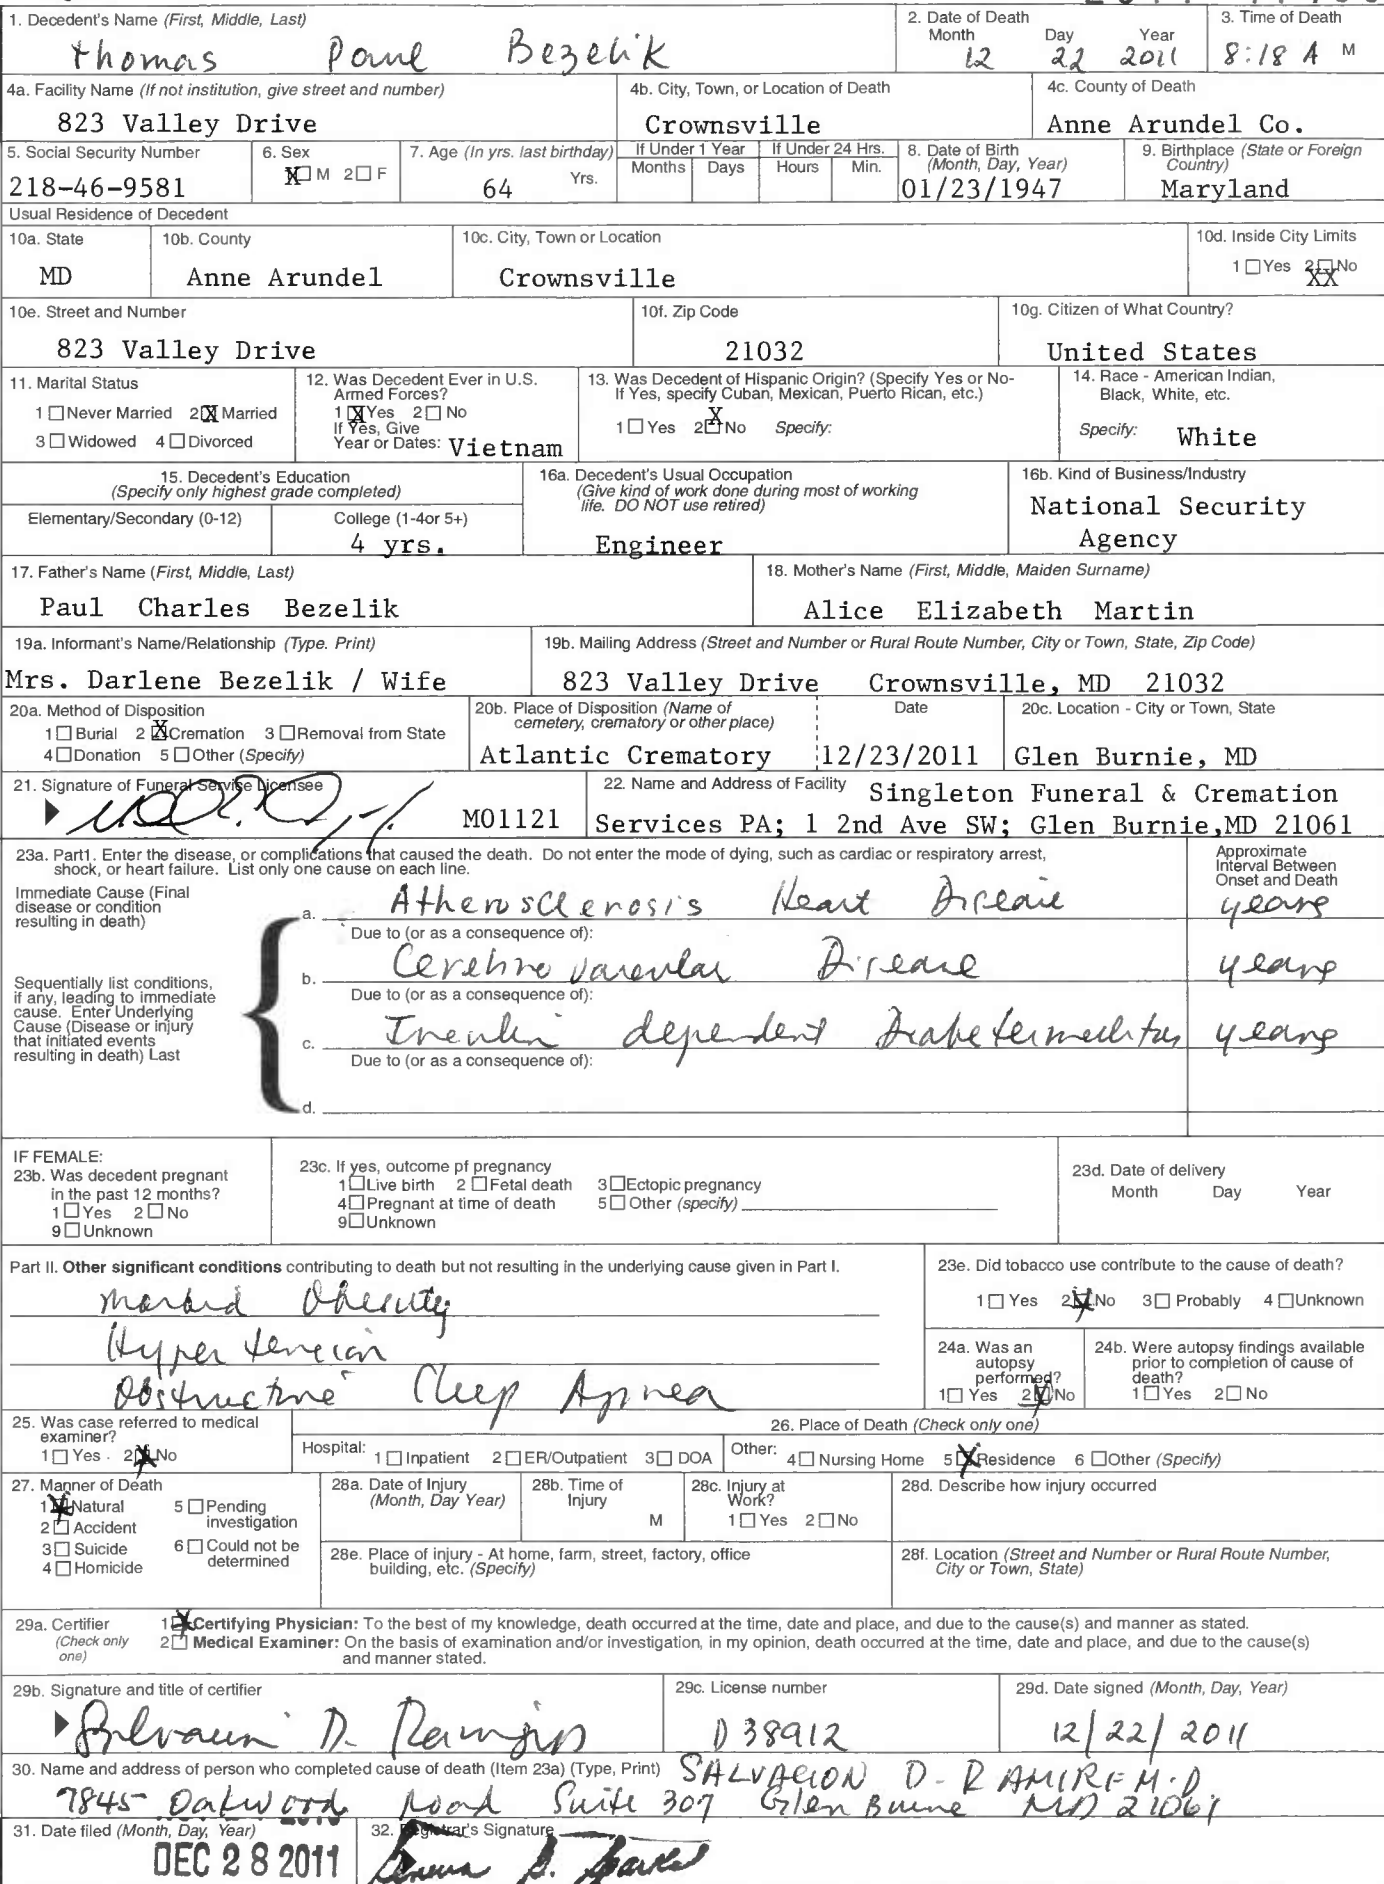 1. Decedent's Name (First, Middle, Last)
Thomas Paul Bezelik
2. Date of Death
Month Day Year
12 22 2011
3. Time of Death
8:18 A M
4a. Facility Name (If not institution, give street and number)
823 Valley Drive
4b. City, Town, or Location of Death
Crownsville
4c. County of Death
Anne Arundel Co.
5. Social Security Number
218-46-9581
6. Sex
X M 2 F
7. Age (In yrs. last birthday)
64 Yrs.
If Under 1 Year
Months Days
If Under 24 Hrs.
Hours Min.
8. Date of Birth
(Month, Day, Year)
01/23/1947
9. Birthplace (State or Foreign
Country)
Maryland
Usual Residence of Decedent
10a. State
MD
10b. County
Anne Arundel
10c. City, Town or Location
Crownsville
10d. Inside City Limits
1 Yes 2 No
XX
10e. Street and Number
823 Valley Drive
10f. Zip Code
21032
10g. Citizen of What Country?
United States
11. Marital Status
1 Never Married 2 X Married
3 Widowed 4 Divorced
12. Was Decedent Ever in U.S.
Armed Forces?
1 X Yes 2 No
If Yes, Give
Year or Dates: Vietnam
13. Was Decedent of Hispanic Origin? (Specify Yes or No-
If Yes, specify Cuban, Mexican, Puerto Rican, etc.)
1 Yes 2 X No Specify:
14. Race - American Indian,
Black, White, etc.
Specify: White
15. Decedent's Education
(Specify only highest grade completed)
Elementary/Secondary (0-12)
College (1-4or 5+)
4 yrs.
16a. Decedent's Usual Occupation
(Give kind of work done during most of working
life. DO NOT use retired)
Engineer
16b. Kind of Business/Industry
National Security
Agency
17. Father's Name (First, Middle, Last)
Paul Charles Bezelik
18. Mother's Name (First, Middle, Maiden Surname)
Alice Elizabeth Martin
19a. Informant's Name/Relationship (Type. Print)
Mrs. Darlene Bezelik / Wife
19b. Mailing Address (Street and Number or Rural Route Number, City or Town, State, Zip Code)
823 Valley Drive Crownsville, MD 21032
20a. Method of Disposition
1 Burial 2 X Cremation 3 Removal from State
4 Donation 5 Other (Specify)
20b. Place of Disposition (Name of
cemetery, crematory or other place)
Atlantic Crematory
Date
12/23/2011
20c. Location - City or Town, State
Glen Burnie, MD
21. Signature of Funeral Service Licensee
M01121
22. Name and Address of Facility Singleton Funeral & Cremation
Services PA; 1 2nd Ave SW; Glen Burnie,MD 21061
23a. Part1. Enter the disease, or complications that caused the death. Do not enter the mode of dying, such as cardiac or respiratory arrest,
shock, or heart failure. List only one cause on each line.
Approximate
Interval Between
Onset and Death
Immediate Cause (Final
disease or condition
resulting in death)
a. Atherosclerosis Heart Disease years
Due to (or as a consequence of):
b. Cerebrovascular Disease years
Due to (or as a consequence of):
Sequentially list conditions,
if any, leading to immediate
cause. Enter Underlying
Cause (Disease or injury
that initiated events
resulting in death) Last
c. Insulin dependent Diabetes mellitus years
Due to (or as a consequence of):
d.
IF FEMALE:
23b. Was decedent pregnant
in the past 12 months?
1 Yes 2 No
9 Unknown
23c. If yes, outcome pf pregnancy
1 Live birth 2 Fetal death 3 Ectopic pregnancy
4 Pregnant at time of death 5 Other (specify)
9 Unknown
23d. Date of delivery
Month Day Year
Part II. Other significant conditions contributing to death but not resulting in the underlying cause given in Part I.
Morbid Obesity
Hypertension
Obstructive Sleep Apnea
23e. Did tobacco use contribute to the cause of death?
1 Yes 2 X No 3 Probably 4 Unknown
24a. Was an
autopsy
performed?
1 Yes 2 X No
24b. Were autopsy findings available
prior to completion of cause of
death?
1 Yes 2 No
25. Was case referred to medical
examiner?
1 Yes 2 X No
26. Place of Death (Check only one)
Hospital: 1 Inpatient 2 ER/Outpatient 3 DOA
Other: 4 Nursing Home 5 X Residence 6 Other (Specify)
27. Manner of Death
1 X Natural 5 Pending
investigation
2 Accident
3 Suicide 6 Could not be
determined
4 Homicide
28a. Date of Injury
(Month, Day Year)
28b. Time of
Injury
M
28c. Injury at
Work?
1 Yes 2 No
28d. Describe how injury occurred
28e. Place of injury - At home, farm, street, factory, office
building, etc. (Specify)
28f. Location (Street and Number or Rural Route Number,
City or Town, State)
29a. Certifier
(Check only
one)
1 X Certifying Physician: To the best of my knowledge, death occurred at the time, date and place, and due to the cause(s) and manner as stated.
2 Medical Examiner: On the basis of examination and/or investigation, in my opinion, death occurred at the time, date and place, and due to the cause(s)
and manner stated.
29b. Signature and title of certifier
29c. License number
D 38912
29d. Date signed (Month, Day, Year)
12/22/2011
30. Name and address of person who completed cause of death (Item 23a) (Type, Print) SALVACION D. RAMIREZ M.D
7845 Oakwood Road Suite 307 Glen Burnie MD 21061
31. Date filed (Month, Day, Year)
DEC 28 2011
32. Registrar's Signature